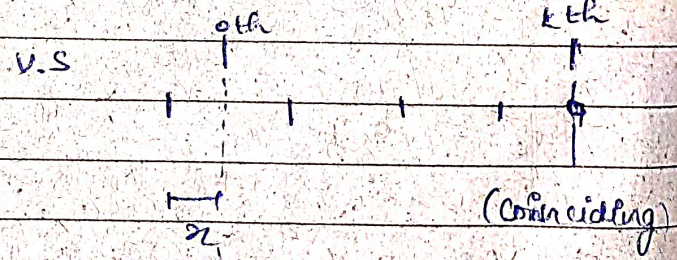 0th kth
V.S
x (Coinciding)